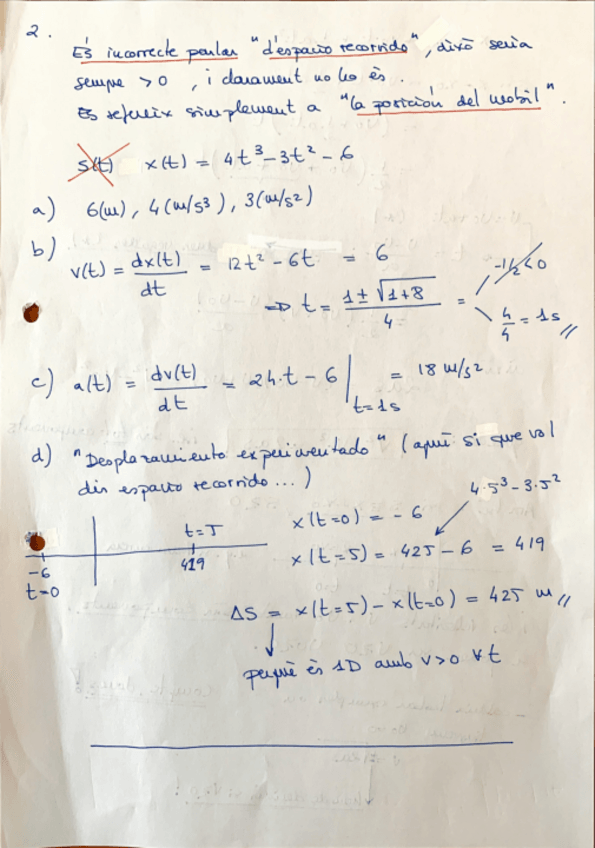 2.
És incorrecte parlar "d'espacio recorrido", això seria
sempre > 0, i clarament no ho és.
Es refereix simplement a "la posición del mobil".
s(t) x(t) = 4t³ - 3t² - 6
a) 6(m), 4(m/s³), 3(m/s²)
b) v(t) = dx(t)/dt = 12t² - 6t = 6
⇒ t = (1 ± √(1+8))/4 = -1/2 < 0
4/4 = 1s //
c) a(t) = dv(t)/dt = 24·t - 6 |t=1s = 18 m/s²
d) "Desplazamiento experimentado" (aquí si que vol
dir espacio recorrido...)
4·5³ - 3·5²
x(t=0) = -6
x(t=5) = 425 - 6 = 419
t=5
-6 419
t=0
ΔS = x(t=5) - x(t=0) = 425 m //
perquè és 1D amb v>0 ∀t